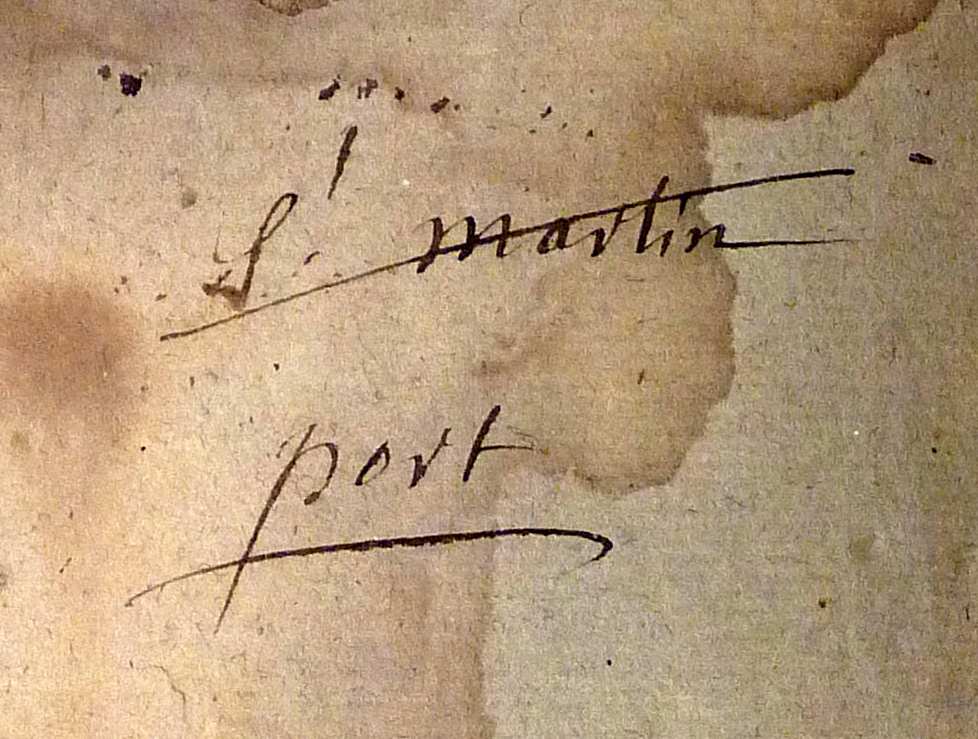 St Martin
port